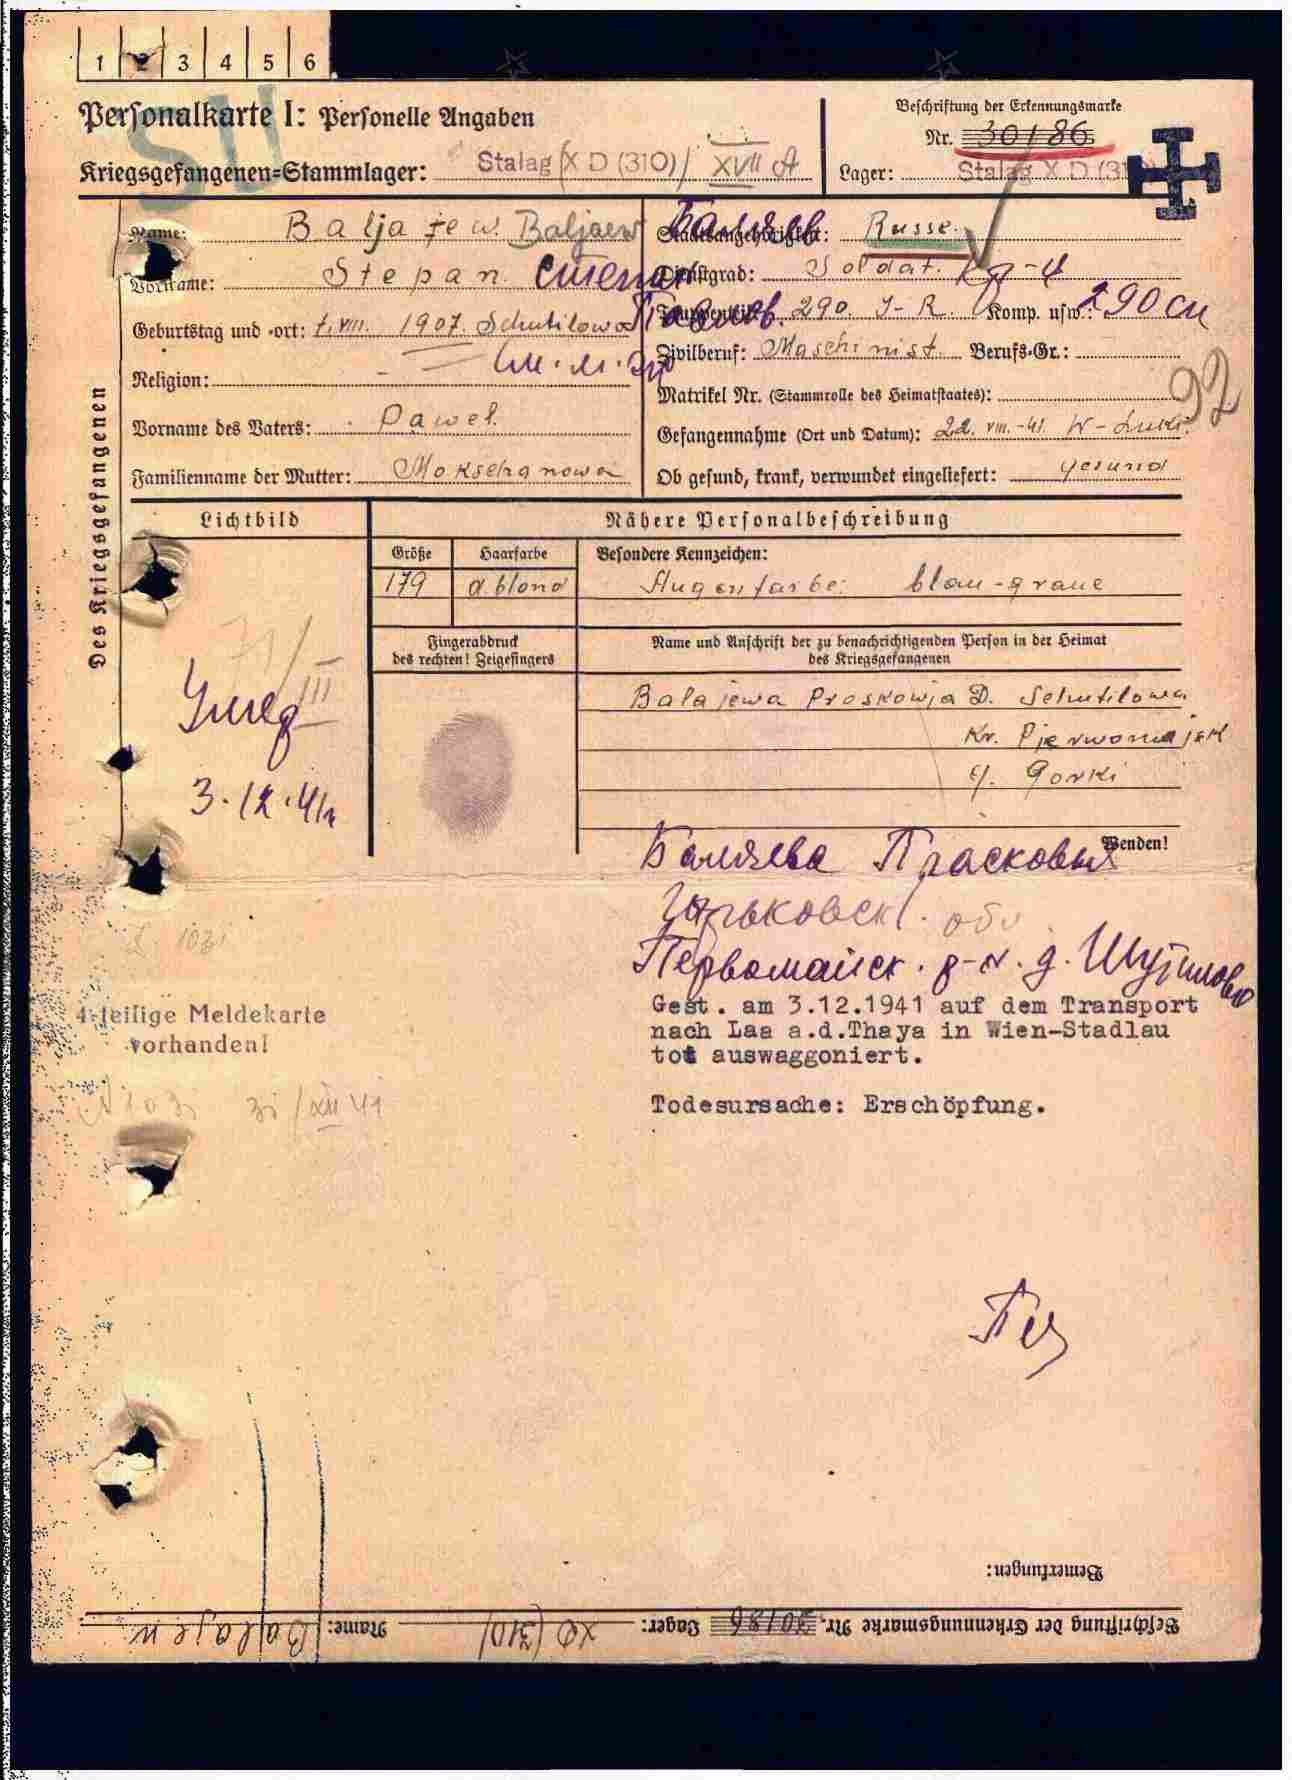 1 2 3 4 5 6
SU
Personalkarte I: Personelle Angaben
Kriegsgefangenen=Stammlager: Stalag X D (310) / XVII A
Beschriftung der Erkennungsmarke
Nr. 30186
Lager: Stalag X D (31
Des Kriegsgefangenen
Name: Baljajew Baljaew Баляев
Vorname: Stepan. Степан
Geburtstag und -ort: VIII. 1907. Schutilowo
Religion:
Vorname des Vaters: Pawel.
Familienname der Mutter: Mokschanowa
Staatsangehörigkeit: Russe.
Dienstgrad: Soldat. кр-ц
Truppenteil: 290. I-R. Komp. usw.: 290 сп
Zivilberuf: Maschinist. Berufs-Gr.:
Matrikel Nr. (Stammrolle des Heimatstaates):
92
Gefangennahme (Ort und Datum): 22. VIII.-41. W-Luki.
Ob gesund, krank, verwundet eingeliefert: gesund
Lichtbild
Nähere Personalbeschreibung
Größe Haarfarbe Besondere Kennzeichen:
179 d.blond Augenfarbe: blau-graue
Fingerabdruck
des rechten! Zeigefingers
Name und Anschrift der zu benachrichtigenden Person in der Heimat
des Kriegsgefangenen
Balajewa Proskowja D. Schutilowa
Kr. Pjerwomajsk
G. Gorki
III
Умер
3.12.41г
Wenden!
Баляева Прасковья
Горьковск. обл
Первомайск. р-н. д. Шутилово
4-teilige Meldekarte
vorhanden!
31/XII 41
Gest. am 3.12.1941 auf dem Transport
nach Laa a.d.Thaya in Wien-Stadlau
tot auswaggoniert.
Todesursache: Erschöpfung.
Bemerkungen:
Beschriftung der Erkennungsmarke Nr. 30186 Lager: XD (310) Name: Balajew